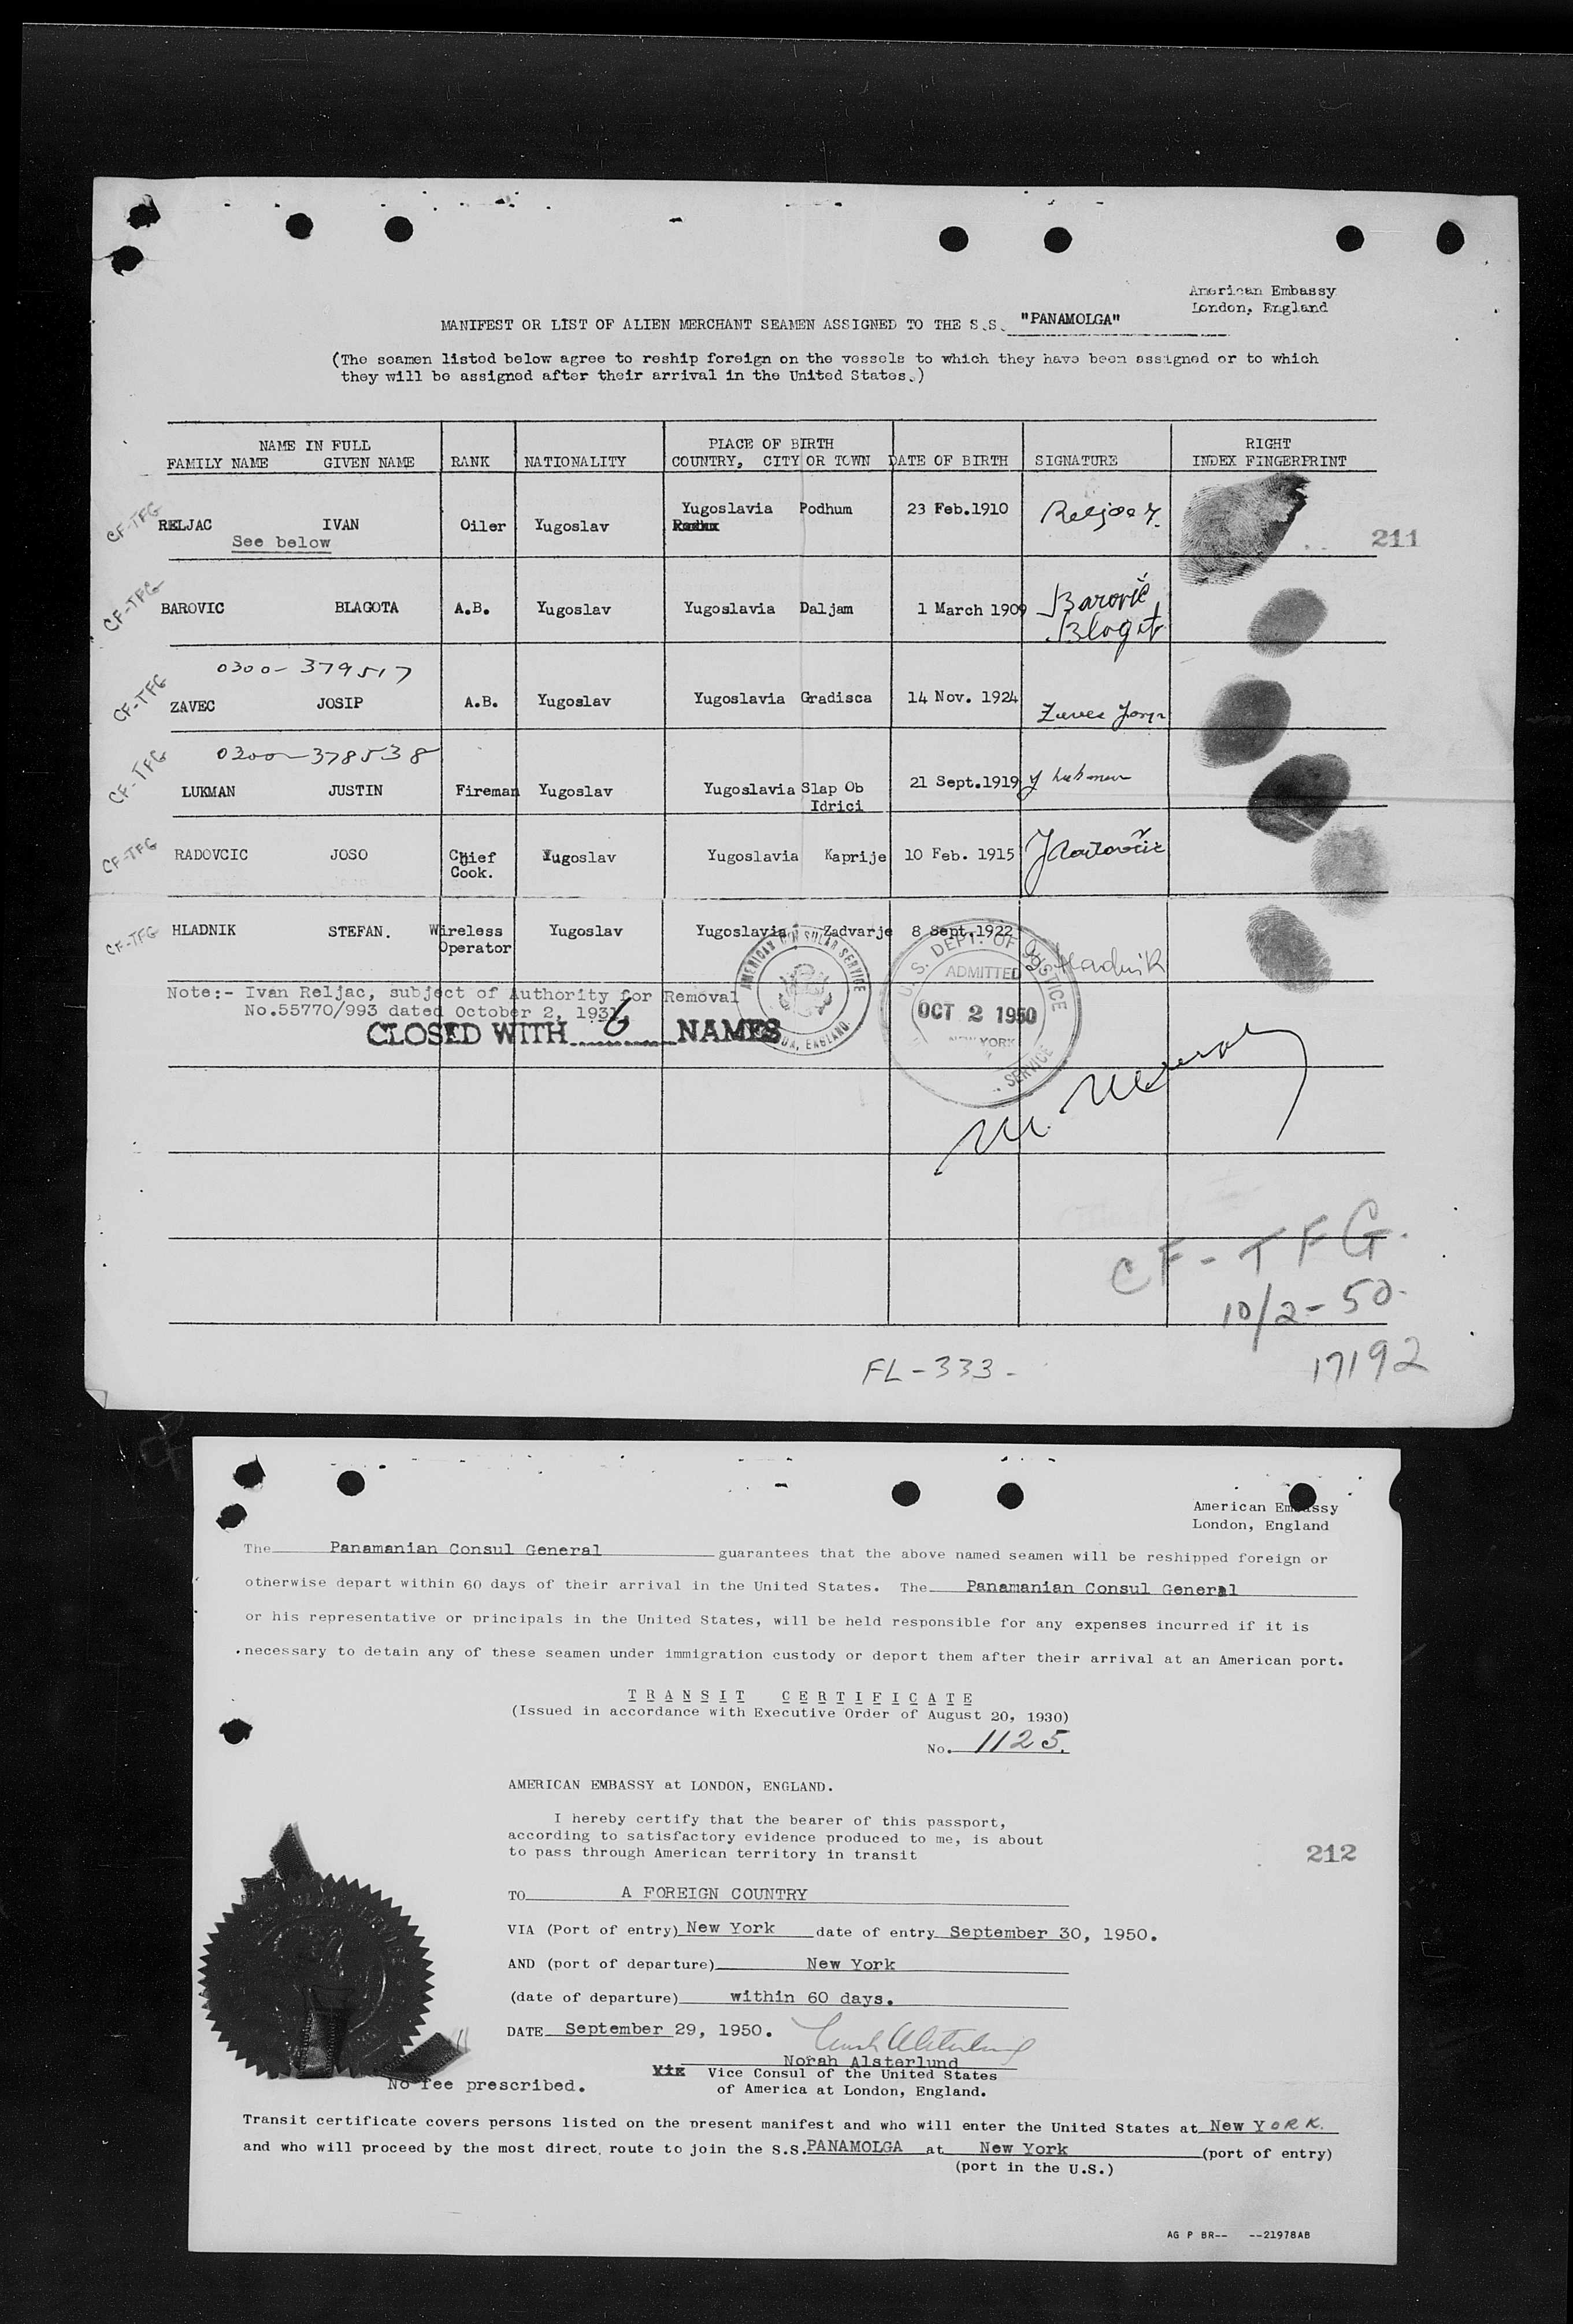 American Embassy
London, England
MANIFEST OR LIST OF ALIEN MERCHANT SEAMEN ASSIGNED TO THE S.S. "PANAMOLGA"
(The seamen listed below agree to reship foreign on the vessels to which they have been assigned or to which
they will be assigned after their arrival in the United States.)
NAME IN FULL PLACE OF BIRTH RIGHT
FAMILY NAME GIVEN NAME RANK NATIONALITY COUNTRY, CITY OR TOWN DATE OF BIRTH SIGNATURE INDEX FINGERPRINT
CF-TFG RELJAC IVAN Oiler Yugoslav Yugoslavia Podhum 23 Feb.1910
See below
211
CF-TFG BAROVIC BLAGOTA A.B. Yugoslav Yugoslavia Daljam 1 March 1909 Barović
Blagot
0300-379517
CF-TFG ZAVEC JOSIP A.B. Yugoslav Yugoslavia Gradisca 14 Nov. 1924 Zavec Josip
0300-378538
CF-TFG LUKMAN JUSTIN Fireman Yugoslav Yugoslavia Slap Ob 21 Sept.1919
Idrici
CF-TFG RADOVCIC JOSO Chief Yugoslav Yugoslavia Kaprije 10 Feb. 1915 J Radovčić
Cook.
CF-TFG HLADNIK STEFAN. Wireless Yugoslav Yugoslavia Zadvarje 8 Sept.1922 Hladnik
Operator
Note:- Ivan Reljac, subject of Authority for Removal
No.55770/993 dated October 2, 1931.
CLOSED WITH 6 NAMES
AMERICAN CONSULAR SERVICE
ENGLAND
U.S. DEPT. OF JUSTICE
ADMITTED
OCT 2 1950
NEW YORK
SERVICE
CF-TFG.
10/2-50.
FL-333-
17192
American Embassy
London, England
The Panamanian Consul General guarantees that the above named seamen will be reshipped foreign or
otherwise depart within 60 days of their arrival in the United States. The Panamanian Consul General
or his representative or principals in the United States, will be held responsible for any expenses incurred if it is
necessary to detain any of these seamen under immigration custody or deport them after their arrival at an American port.
TRANSIT CERTIFICATE
(Issued in accordance with Executive Order of August 20, 1930)
No. 1125.
AMERICAN EMBASSY at LONDON, ENGLAND.
I hereby certify that the bearer of this passport,
according to satisfactory evidence produced to me, is about
to pass through American territory in transit
212
TO A FOREIGN COUNTRY
VIA (Port of entry) New York date of entry September 30, 1950.
AND (port of departure) New York
(date of departure) within 60 days.
DATE September 29, 1950.
Norah Alsterlund
Vice Consul of the United States
of America at London, England.
No fee prescribed.
Transit certificate covers persons listed on the present manifest and who will enter the United States at New YORK.
and who will proceed by the most direct route to join the S.S. PANAMOLGA at New York (port of entry)
(port in the U.S.)
AG P BR-- --21978AB